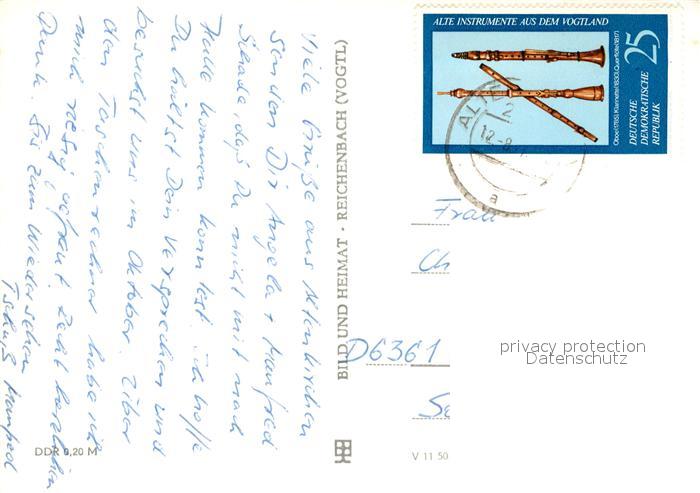 Viele Grüße aus Altenkirchen
senden Dir Angela + Manfred
Schade, daß Du nicht mit nach
Halle kommen konntest. Ich hoffe
Du hältst Dein Versprechen und
besuchst uns im Oktober. Über
den Taschenrechner habe ich
mich riesig gefreut. Recht herzlichen
Dank. Bis zum Wiedersehen
Tschüß Manfred
DDR 0,20 M
BILD UND HEIMAT · REICHENBACH (VOGTL)
V 11 50
ALTE INSTRUMENTE AUS DEM VOGTLAND
25
DEUTSCHE
DEMOKRATISCHE
REPUBLIK
Oboe(1785), Klarinette(1830), Querflöte(1817)
a
Frau
Ch
D6361
Se
privacy protection
Datenschutz